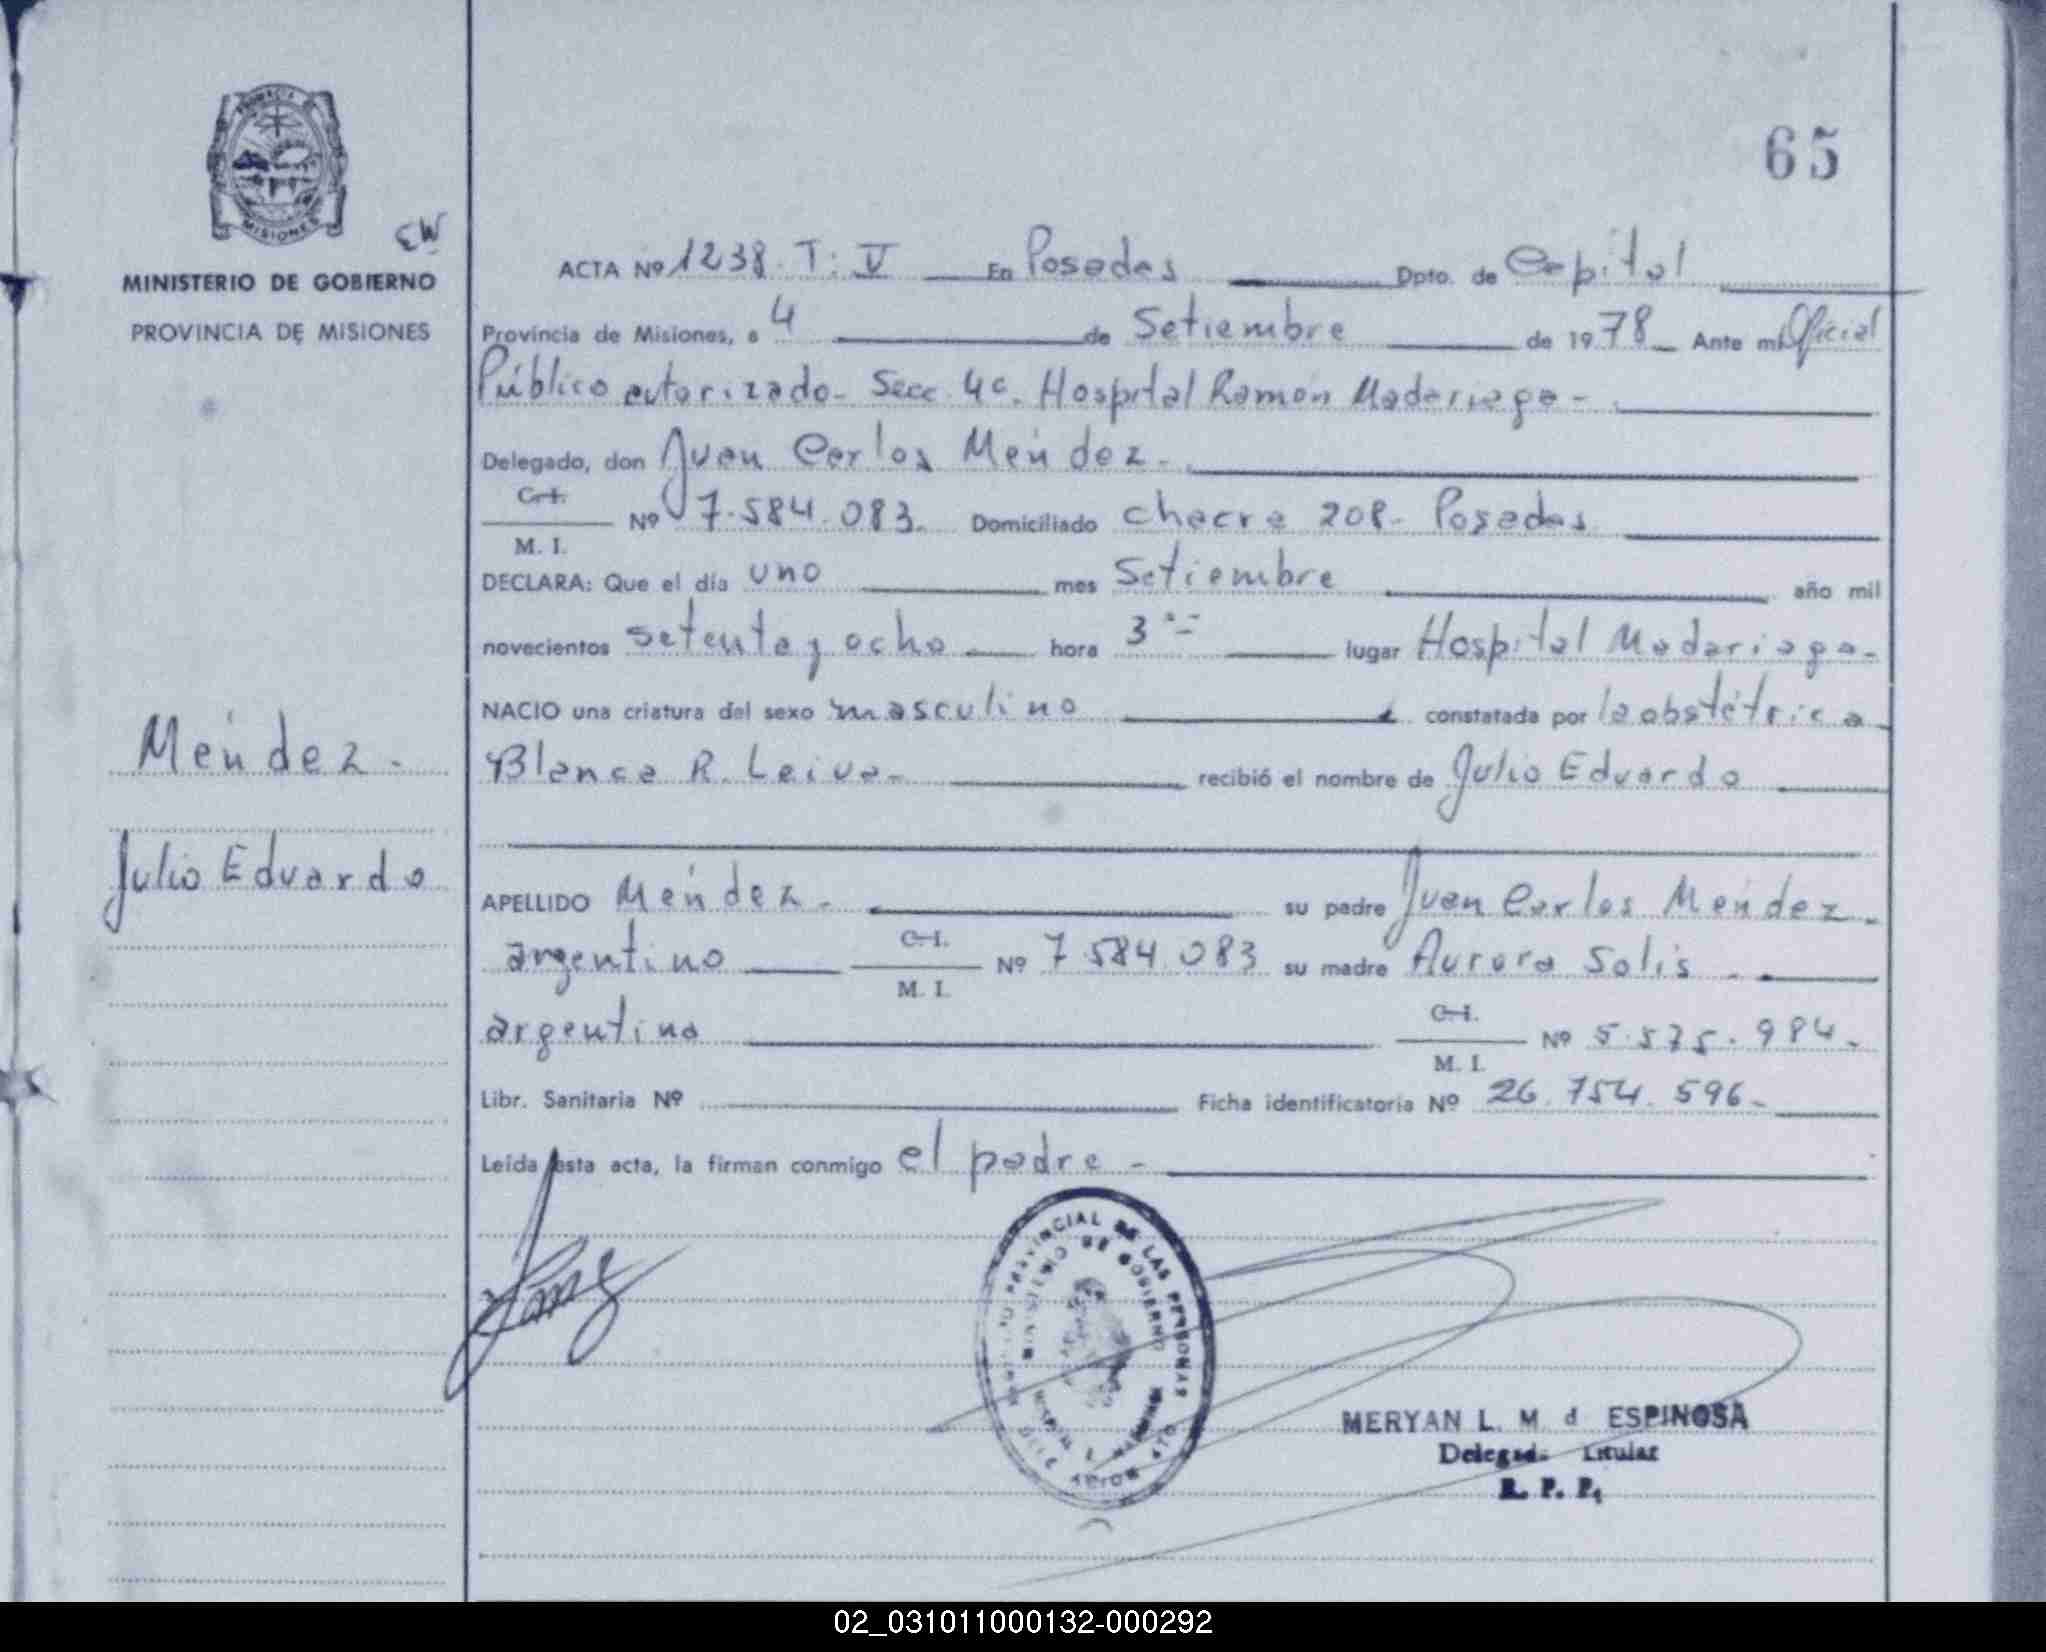 65
PROVINCIA DE
MISIONES
EW
MINISTERIO DE GOBIERNO
PROVINCIA DE MISIONES
ACTA Nº 1238. T: V En Posadas Dpto. de Capital
Provincia de Misiones, a 4 de Setiembre de 1978 Ante mi Oficial
Público autorizado - Secc. 4c. Hospital Ramón Madariaga -
Delegado, don Juan Carlos Méndez -
C. I.
M. I.
Nº 7.584.083. Domiciliado chacra 208 - Posadas
DECLARA: Que el día uno mes Setiembre año mil
novecientos setenta y ocho hora 3 lugar Hospital Madariaga -
NACIO una criatura del sexo masculino constatada por la obstétrica
Blanca R. Leiva - recibió el nombre de Julio Eduardo
Méndez -
Julio Eduardo
APELLIDO Méndez - su padre Juan Carlos Méndez -
argentino C. I. M. I. Nº 7.584.083 su madre Aurora Solis -
argentina C. I. M. I. Nº 5.575.984 -
Libr. Sanitaria Nº Ficha identificatoria Nº 26.754.596 -
Leída esta acta, la firman conmigo el padre -
PROVINCIAL DE LAS PERSONAS
MINISTERIO DE GOBIERNO
MERYAN L. M. d ESPINOSA
Delegad Titular
R. P. P.
02_031011000132-000292